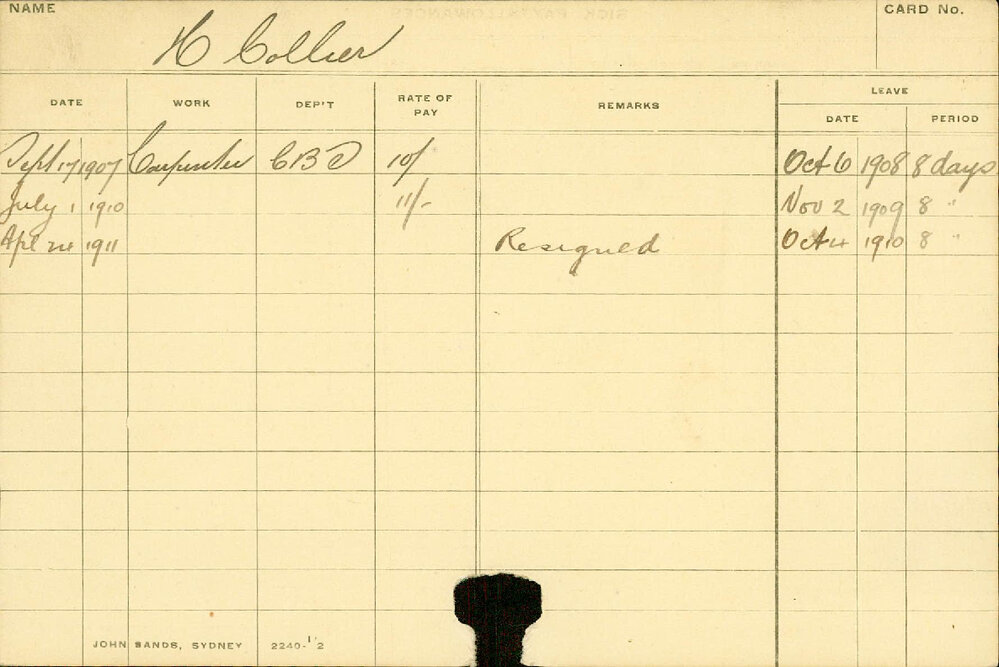 NAME
CARD No.
H Collier
DATE WORK DEP'T RATE OF PAY REMARKS LEAVE
DATE PERIOD
Sept 17 1907 Carpenter CBD 10/ Oct 6 1908 8 days
July 1 1910 11/- Nov 2 1909 8 "
Apl 24 1911 Resigned Oct 4 1910 8 "
JOHN SANDS, SYDNEY 2240-1'2